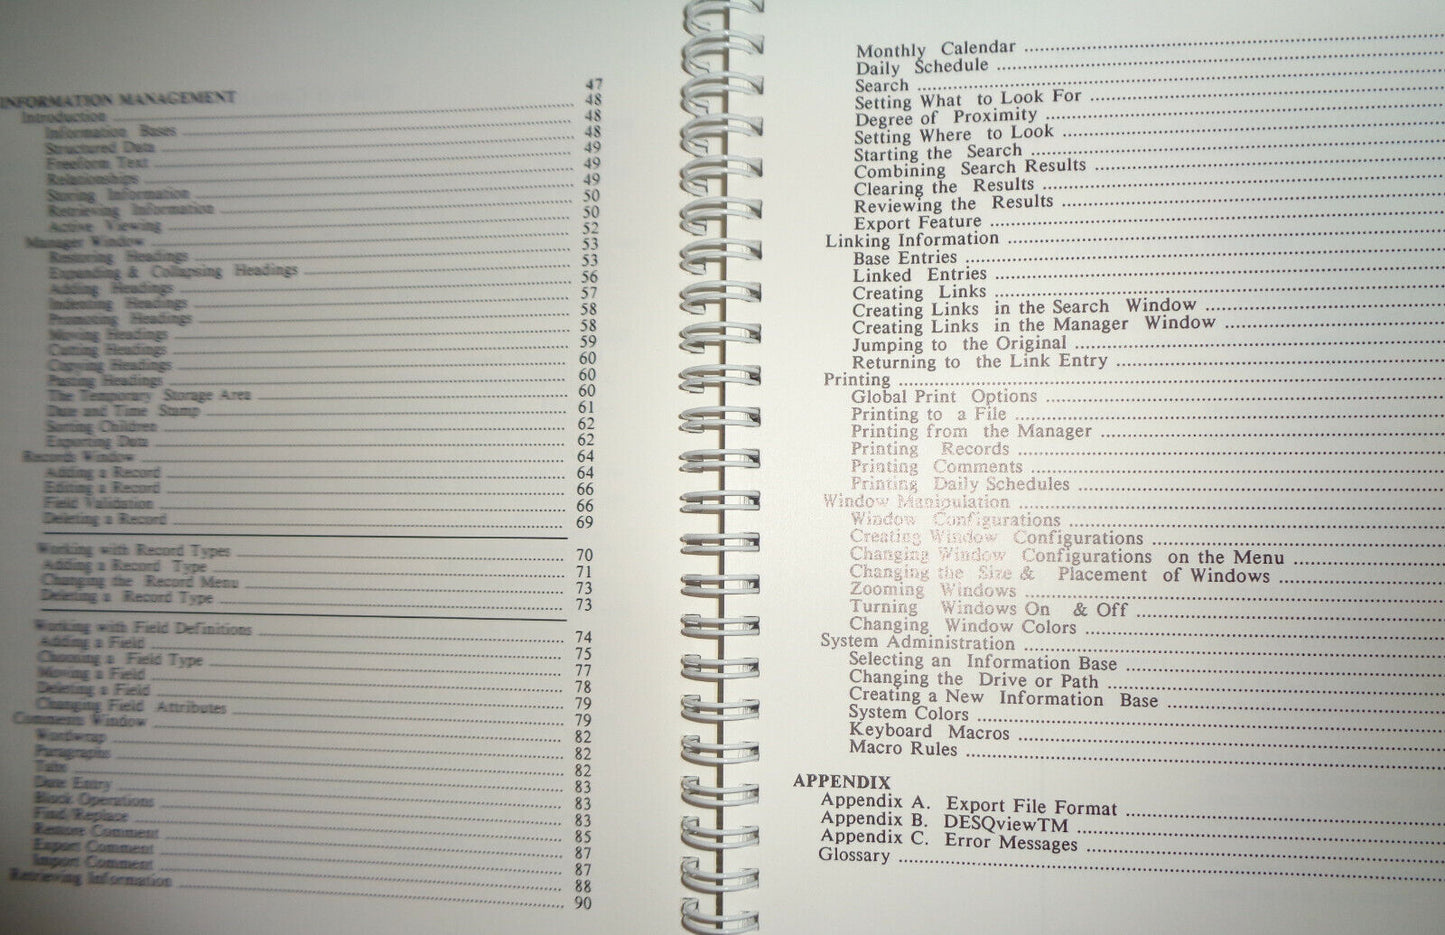 INFORMATION MANAGEMENT 47
Introduction 48
Information Bases 48
Structured Data 48
Freeform Text 49
Relationships 49
Storing Information 49
Retrieving Information 50
Active Viewing 50
Manager Window 52
Restoring Headings 53
Expanding & Collapsing Headings 53
Adding Headings 56
Indenting Headings 57
Promoting Headings 58
Moving Headings 58
Cutting Headings 59
Copying Headings 60
Pasting Headings 60
The Temporary Storage Area 60
Date and Time Stamp 61
Sorting Children 62
Exporting Data 62
Records Window 64
Adding a Record 64
Editing a Record 66
Field Validation 66
Deleting a Record 69
Working with Record Types 70
Adding a Record Type 71
Changing the Record Menu 73
Deleting a Record Type 73
Working with Field Definitions 74
Adding a Field 75
Choosing a Field Type 77
Moving a Field 78
Deleting a Field 79
Changing Field Attributes 79
Comments Window 82
Wordwrap 82
Paragraphs 82
Tabs 83
Date Entry 83
Block Operations 83
Find/Replace 85
Comment 87
Export Comment 87
Import Comment 88
Retrieving Information 90
Monthly Calendar
Daily Schedule
Search
Setting What to Look For
Degree of Proximity
Setting Where to Look
Starting the Search
Combining Search Results
Clearing the Results
Reviewing the Results
Export Feature
Linking Information
Base Entries
Linked Entries
Creating Links
Creating Links in the Search Window
Creating Links in the Manager Window
Jumping to the Original
Returning to the Link Entry
Printing
Global Print Options
Printing to a File
Printing from the Manager
Printing Records
Printing Comments
Printing Daily Schedules
Window Manipulation
Window Configurations
Creating Window Configurations
Changing Window Configurations on the Menu
Changing the Size & Placement of Windows
Zooming Windows
Turning Windows On & Off
Changing Window Colors
System Administration
Selecting an Information Base
Changing the Drive or Path
Creating a New Information Base
System Colors
Keyboard Macros
Macro Rules
APPENDIX
Appendix A. Export File Format
Appendix B. DESQviewTM
Appendix C. Error Messages
Glossary